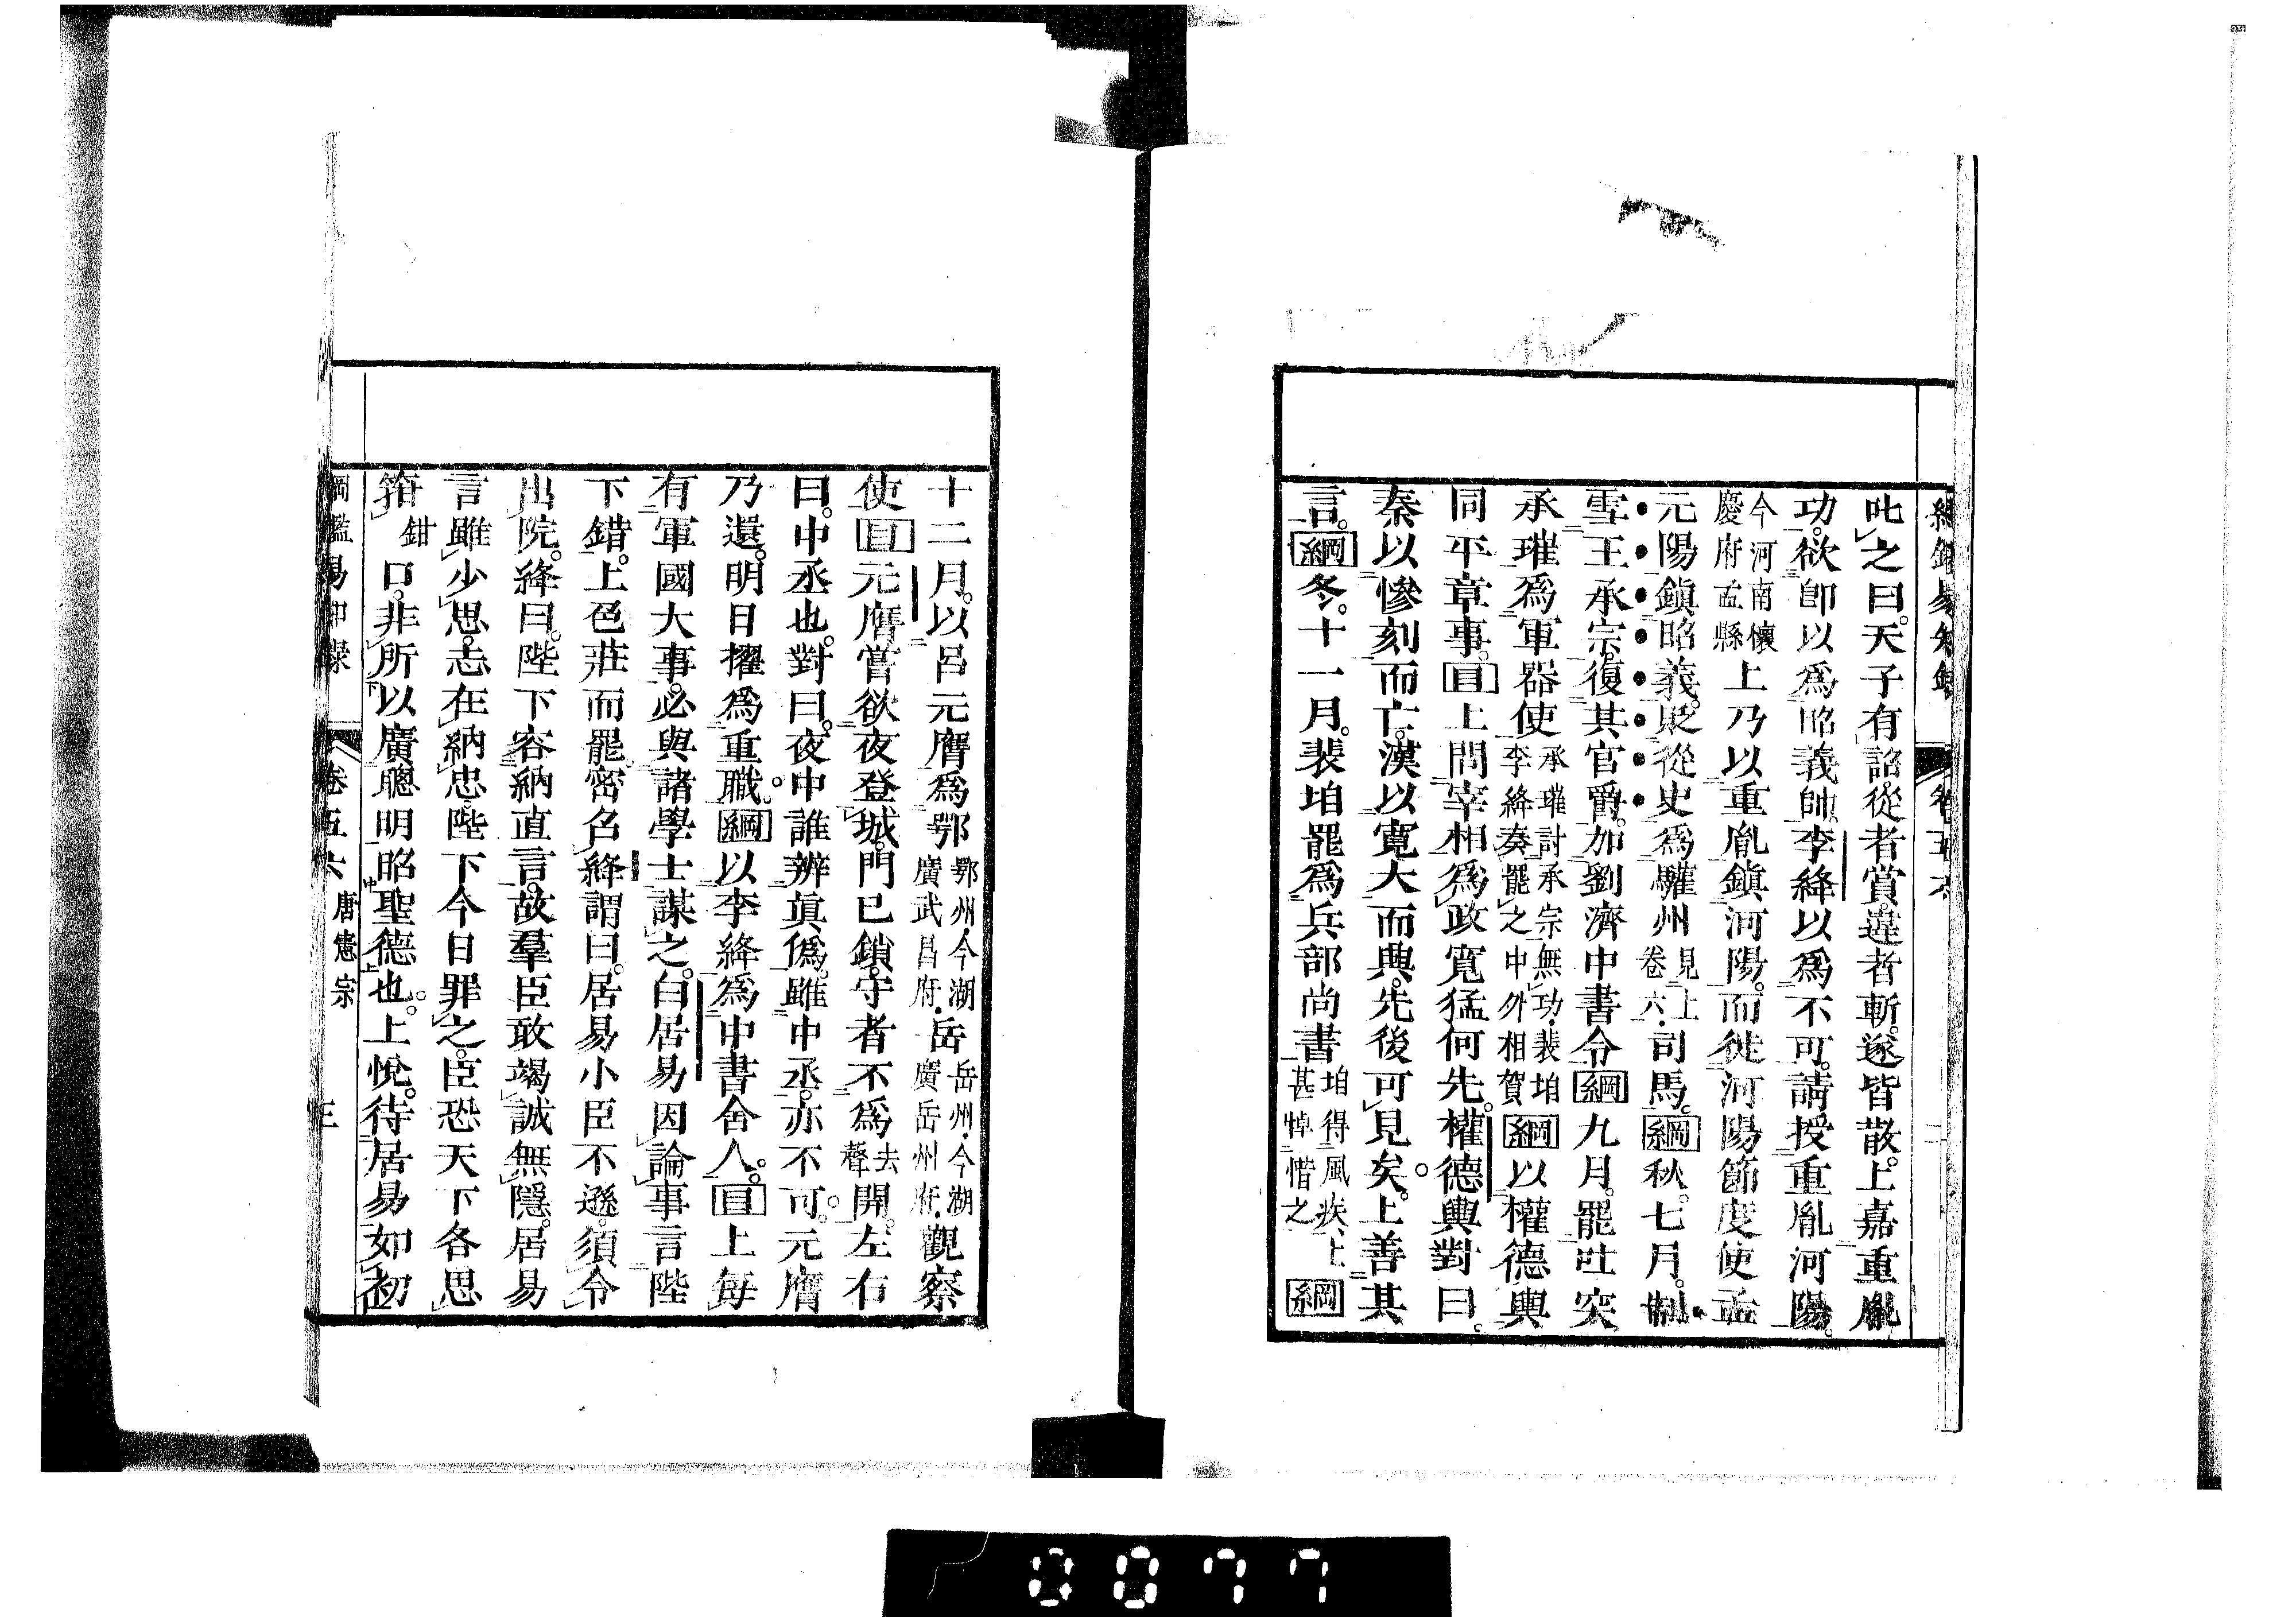 叱之曰。天子有詔從者賞。違者斬。遂皆散。上嘉重胤
功。欲卽以爲昭義帥。李絳以爲不可。請授重胤河陽。
今河南懷慶府孟縣上乃以重胤鎭河陽。而徙河陽節度使孟
元陽鎭昭義。貶從史爲驩州見上卷六司馬。綱秋。七月。制
雪王承宗。復其官爵。加劉濟中書令綱九月。罷吐突
承璀爲軍器使承璀討承宗無功裴垍李絳奏罷之中外相賀綱以權德輿
同平章事。目上問宰相。爲政寬猛何先。權德輿對曰。
秦以慘刻而亡。漢以寬大而興。先後可見矣。上善其
言。綱冬。十一月。裴垍罷爲兵部尚書垍得風疾上甚悼惜之綱
十二月。以呂元膺爲鄂鄂州今湖廣武昌府岳岳州今湖廣岳州府觀察
使目元膺嘗欲夜登城。門已鎖。守者不爲去聲開。左右
曰。中丞也。對曰。夜中誰辨眞僞。雖中丞。亦不可。元膺
乃還。明日擢爲重職。綱以李絳爲中書舍人。目上每
有軍國大事。必與諸學士謀之。白居易因論事言陛
下錯。上色莊而罷。密召絳謂曰。居易小臣不遜。須令
出院。絳曰。陛下容納直言。故羣臣敢竭誠無隱。居易
言雖少思。志在納忠。陛下今日罪之。臣恐天下各思
箝鉗口。非所以廣聰明昭聖德也。上悅。待居易如初
綱鑑易知錄 卷五六 唐憲宗 三